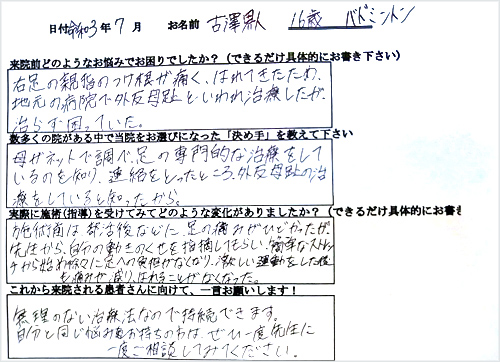 日付 令和3年 7月 お名前 古澤 16歳 バドミントン
来院前どのようなお悩みでお困りでしたか？（できるだけ具体的にお書き下さい）
右足の親指のつけ根が痛く、はれてきたため、
地元の病院で外反母趾といわれ治療したが、
治らず困っていた。
数多くの院がある中で当院をお選びになった「決め手」を教えて下さい
母がネットで調べ、足の専門的な治療をして
いるのを知り、連絡をとったところ、外反母趾の治
療をしていると知ったから。
実際に施術(指導)を受けてみてどのような変化がありましたか？（できるだけ具体的にお書き
施術前は部活後などに、足の痛みがひどかったが、
先生から、自分の動きのくせを指摘してもらい、簡単なストレッ
チから始め徐々に足への負担がなくなり、激しい運動をした後
も痛みが減り、はれることがなくなった。
これから来院される患者さんに向けて、一言お願いします！
無理のない治療法なので持続できます。
自分と同じ悩みをお持ちの方は、ぜひ一度先生に
一度ご相談してみてください。